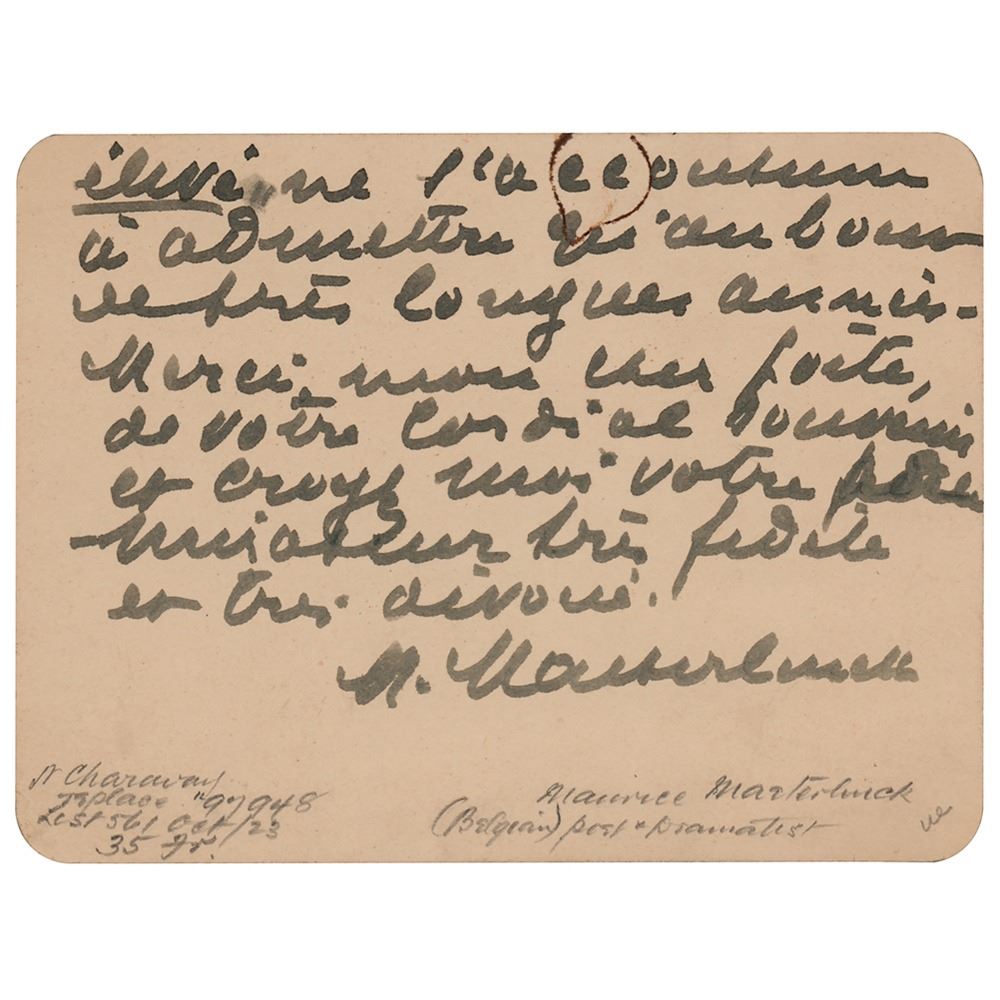 élevé ne s'accoutume
à admettre qu'au bout
de très longues années.
Merci, mon cher poète,
de votre cordial souvenir
et croyez moi votre admi
-rateur très fidèle
et très dévoué.
M. Maeterlinck
N Charavay
replace "97948
List 561 Oct/23
35 Fr.
Maurice Maeterlinck
(Belgian) poet & Dramatist